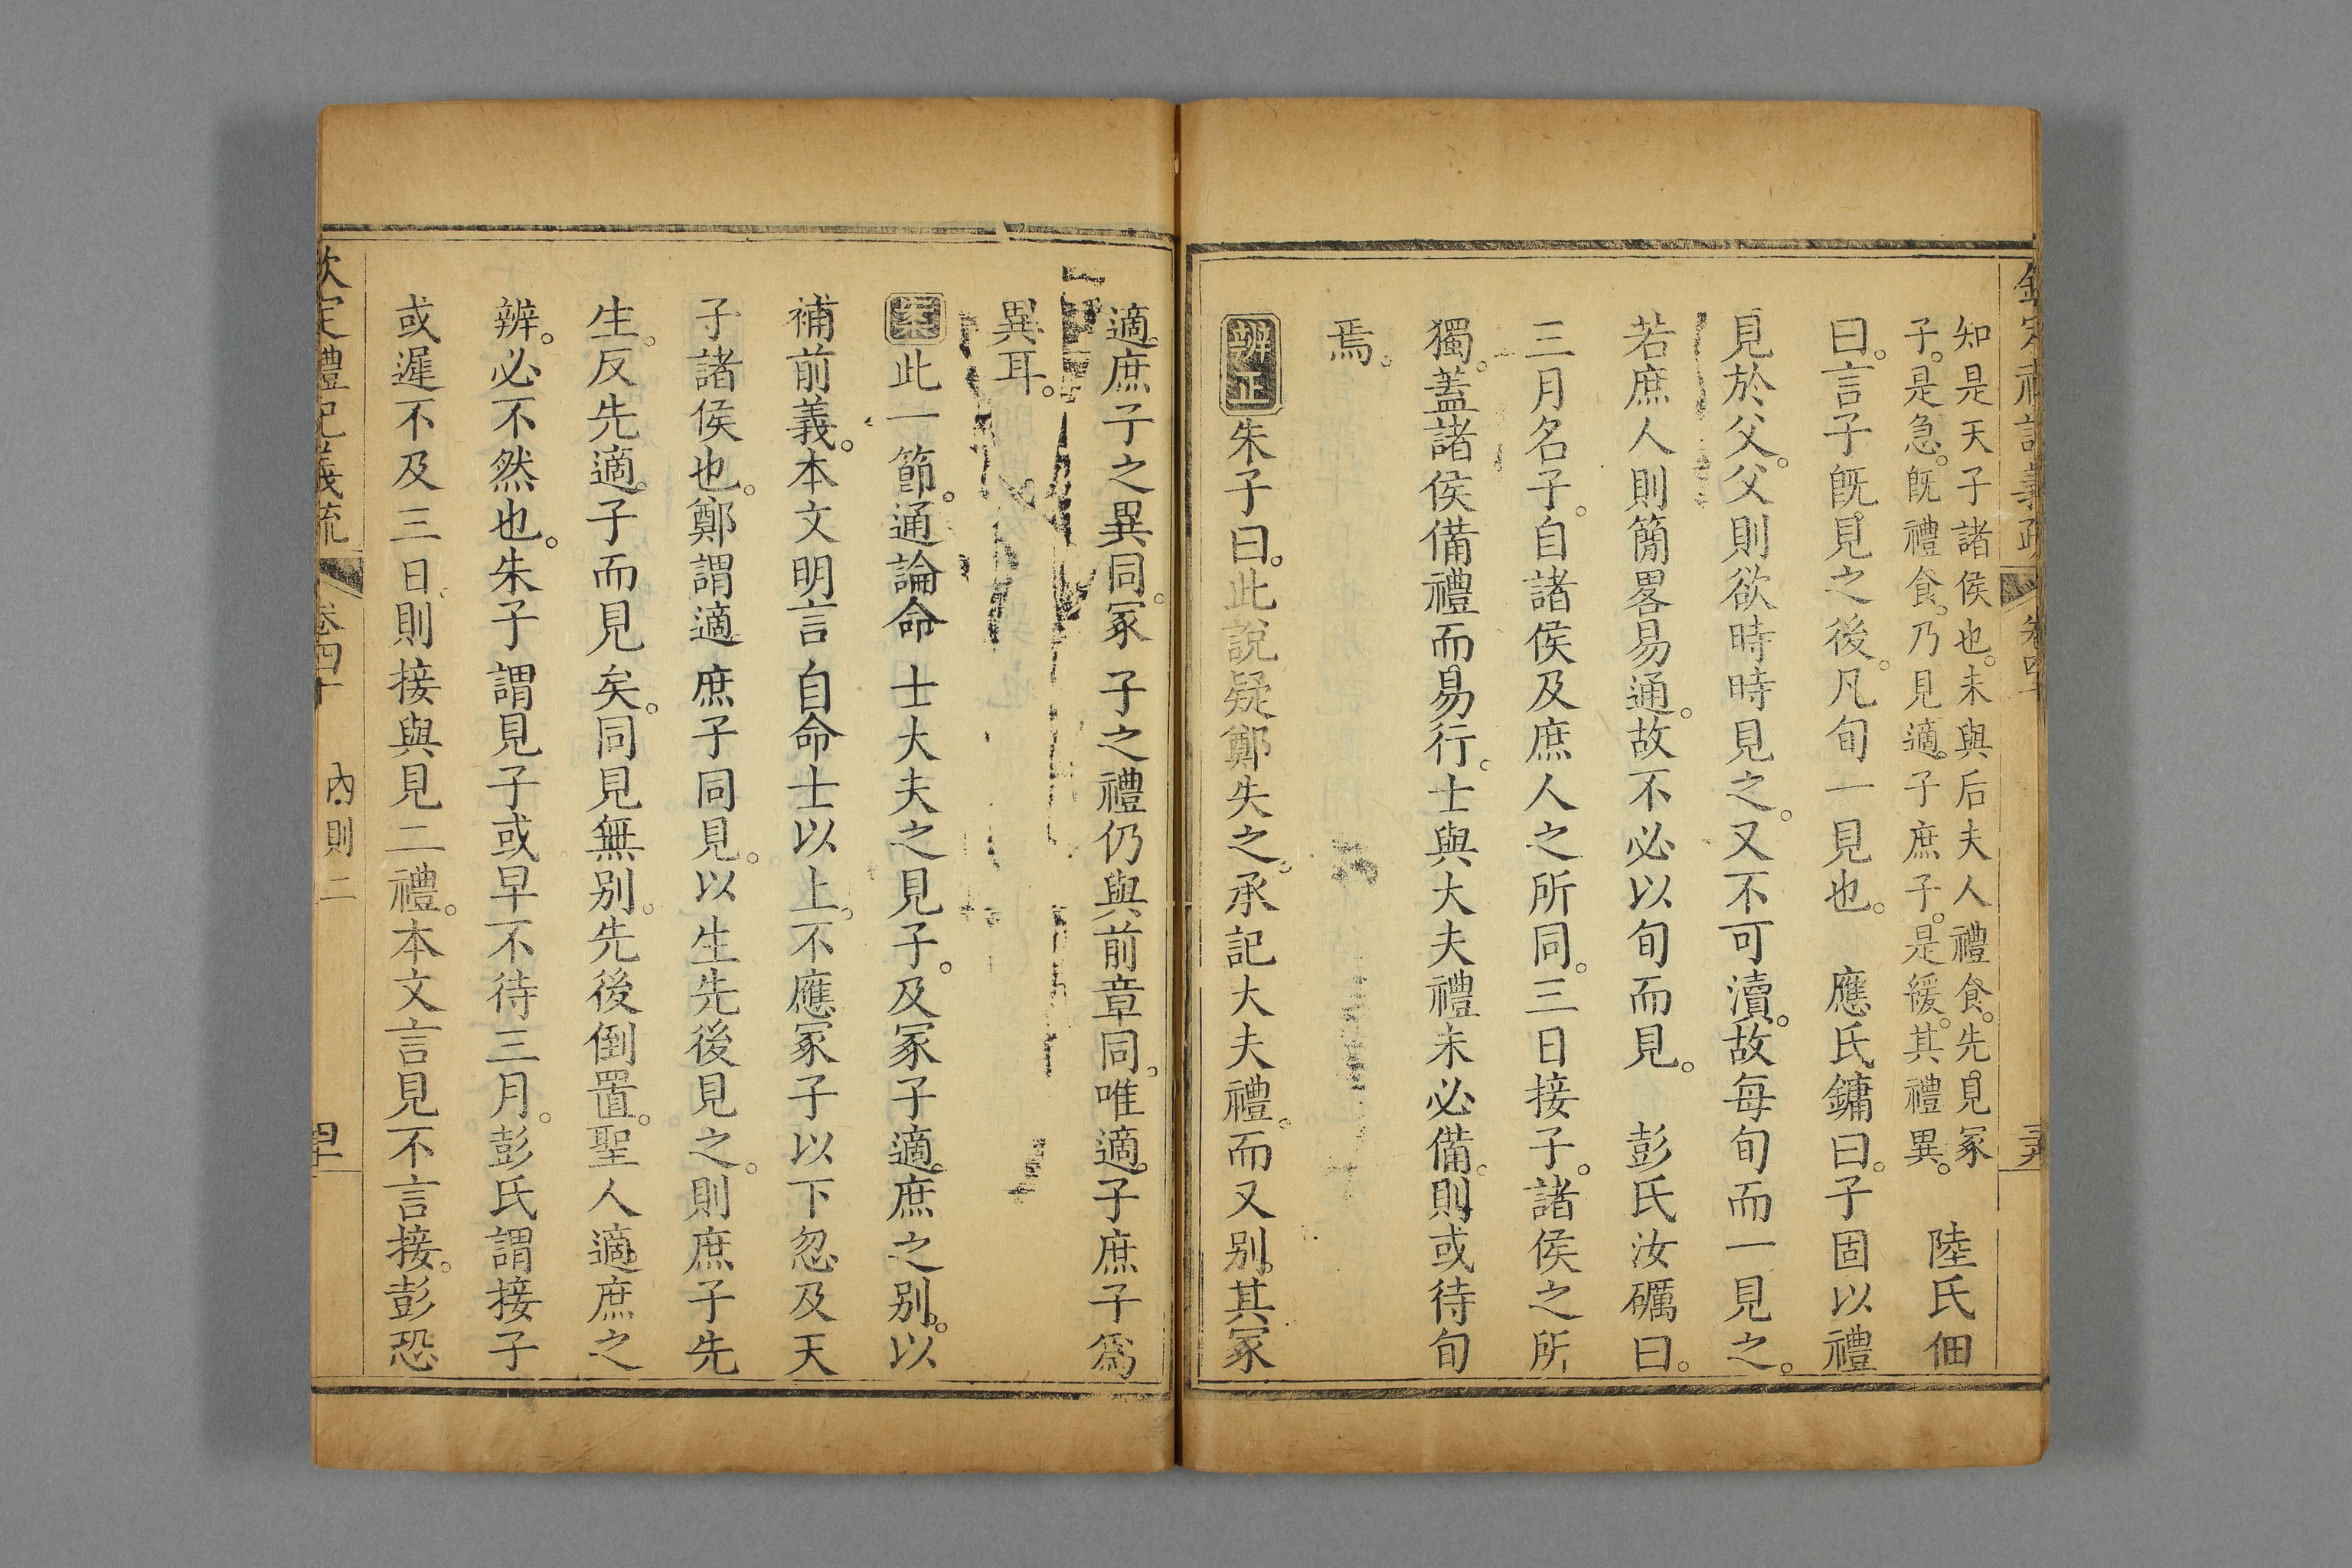 知是天子諸侯也。未與后夫人禮食。先見冢
子。是急。旣禮食。乃見適子庶子。是緩。其禮異。
陸氏佃
曰。言子旣見之後。凡旬一見也。　應氏鏞曰。子固以禮
見於父。父則欲時時見之。又不可瀆。故每旬而一見之。
若庶人則簡畧易通。故不必以旬而見。　彭氏汝礪曰。
三月名子。自諸侯及庶人之所同。三日接子。諸侯之所
獨。蓋諸侯備禮而易行。士與大夫禮未必備。則或待旬
焉。
辨正朱子曰。此說疑鄭失之。承記大夫禮。而又别。其冢
適庶子之異同。冢子之禮仍與前章同。唯適子庶子爲
異耳。
案此一節。通論命士大夫之見子。及冢子適庶之别。以
補前義。本文明言自命士以上。不應冢子以下忽及天
子諸侯也。鄭謂適庶子同見。以生先後見之。則庶子先
生。反先適子而見矣。同見無别。先後倒置。聖人適庶之
辨。必不然也。朱子謂見子或早不待三月。彭氏謂接子
或遲不及三日。則接與見二禮。本文言見不言接。彭恐
欽定禮記義疏　卷四十　內則二